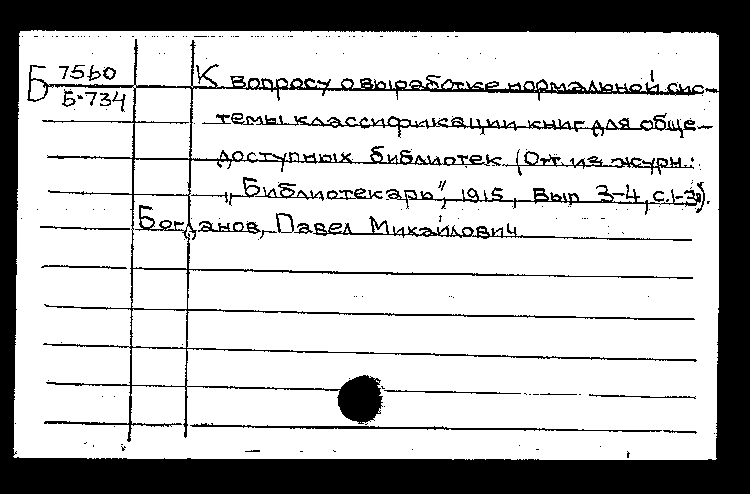 Б 7560
Б-734
К вопросу о выработке нормальной сис-
темы классификации книг для обще-
доступных библиотек (От. из журн.:
„Библиотекарь", 1915, Вып 3-4, с.1-3).
Богданов, Павел Михайлович.